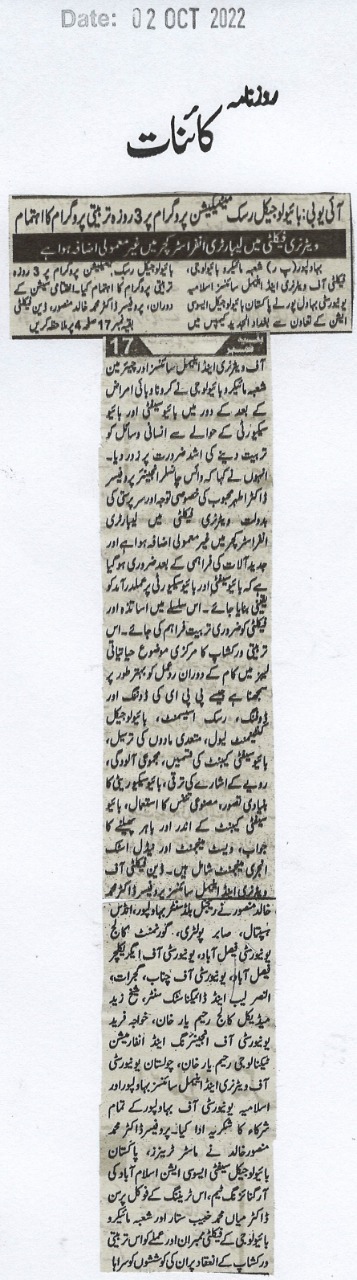 Date: 02 OCT 2022
روزنامہ
کائنات
آئی یو بی: بائیولوجیکل رسک مٹیگیشن پروگرام پر 3 روزہ تربیتی پروگرام کا اہتمام
ویٹرنری فیکلٹی میں لیبارٹری انفراسٹرکچر میں غیر معمولی اضافہ ہوا ہے
بہاولپور (پ ر) شعبہ مائیکرو بائیولوجی،
فیکلٹی آف ویٹرنری اینڈ اینیمل سائنسز اسلامیہ
یونیورسٹی بہاول پور نے پاکستان بائیولوجیکل سیفٹی ایسوسی
ایشن کے تعاون سے بغداد الجدید کیمپس میں
بائیولوجیکل رسک مٹیگیشن پروگرام پر 3 روزہ
تربیتی پروگرام کا اہتمام کیا۔ افتتاحی سیشن کے
دوران، پروفیسر ڈاکٹر محمد خالد منصور، ڈین فیکلٹی
بقیہ نمبر 17 صفحہ 4 پر ملاحظہ کریں
بقیہ نمبر 17
آف ویٹرنری اینڈ اینیمل سائنسز اور چیئرمین
شعبہ مائیکرو بائیولوجی نے کرونا وبائی امراض
کے بعد کے دور میں بائیو سیفٹی اور بائیو
سیکیورٹی کے حوالے سے انسانی وسائل کو
تربیت دینے کی اشد ضرورت پر زور دیا۔
انہوں نے کہا کہ وائس چانسلر انجینئر پروفیسر
ڈاکٹر اطہر محبوب کی خصوصی توجہ اور سرپرستی کی
بدولت ویٹرنری فیکلٹی میں لیبارٹری
انفراسٹرکچر میں غیر معمولی اضافہ ہوا ہے اور
جدید آلات کی فراہمی کے بعد ضروری ہو گیا
ہے کہ بائیو سیفٹی اور بائیو سیکیورٹی پر عملدرآمد کو
یقینی بنایا جائے۔ اس سلسلے میں اساتذہ اور
فیکلٹی کو ضروری تربیت فراہم کی جائے۔ اس
تربیتی ورکشاپ کا مرکزی موضوع حیاتیاتی
لیبز میں کام کے دوران ردعمل کو بہتر طور پر
سمجھنا ہے جیسے پی پی ای کی ڈوننگ اور
ڈوفنگ، رسک اسیسمنٹ، بائیولوجیکل
کنٹینمنٹ لیول، متعدی مادوں کی ترسیل،
بائیو سیفٹی کیبنٹ کی قسمیں، مجموعی آلودگی،
رویے کے اشارے کی ترقی، بائیو سیکیورٹی کا
بنیادی تصور، مصنوعی تنفس کا استعمال، بائیو
سیفٹی کیبنٹ کے اندر اور باہر پھیلنے کا
جواب، ویسٹ مینجمنٹ اور نیڈل اسٹک
انجری مینجمنٹ شامل ہیں۔ ڈین فیکلٹی آف
ویٹرنری اینڈ اینیمل سائنسز پروفیسر ڈاکٹر محمد
خالد منصور نے ریجنل بلڈ سنٹر بہاولپور، انڈس
ہسپتال، صابر پولٹری، گورنمنٹ کالج
یونیورسٹی فیصل آباد، یونیورسٹی آف ایگریکلچر
فیصل آباد، یونیورسٹی آف چناب، گجرات،
النصر لیب اینڈ ڈائیگناسٹک سنٹر، شیخ زید
میڈیکل کالج رحیم یار خان، خواجہ فرید
یونیورسٹی آف انجینئرنگ اینڈ انفارمیشن
ٹیکنالوجی رحیم یار خان، چولستان یونیورسٹی
آف ویٹرنری اینڈ اینیمل سائنسز بہاولپور اور
اسلامیہ یونیورسٹی آف بہاولپور کے تمام
شرکاء کا شکریہ ادا کیا۔ پروفیسر ڈاکٹر محمد
منصور خالد نے ماسٹر ٹرینرز، پاکستان
بائیولوجیکل سیفٹی ایسوسی ایشن اسلام آباد کی
آرگنائزنگ ٹیم، اس ٹریننگ کے فوکل پرسن
ڈاکٹر میاں محمد خبیب ستار اور شعبہ مائیکرو
بائیولوجی کے فیکلٹی ممبران اور عملے کو اس تربیتی
ورکشاپ کے انعقاد پر ان کی کوششوں کو سراہا